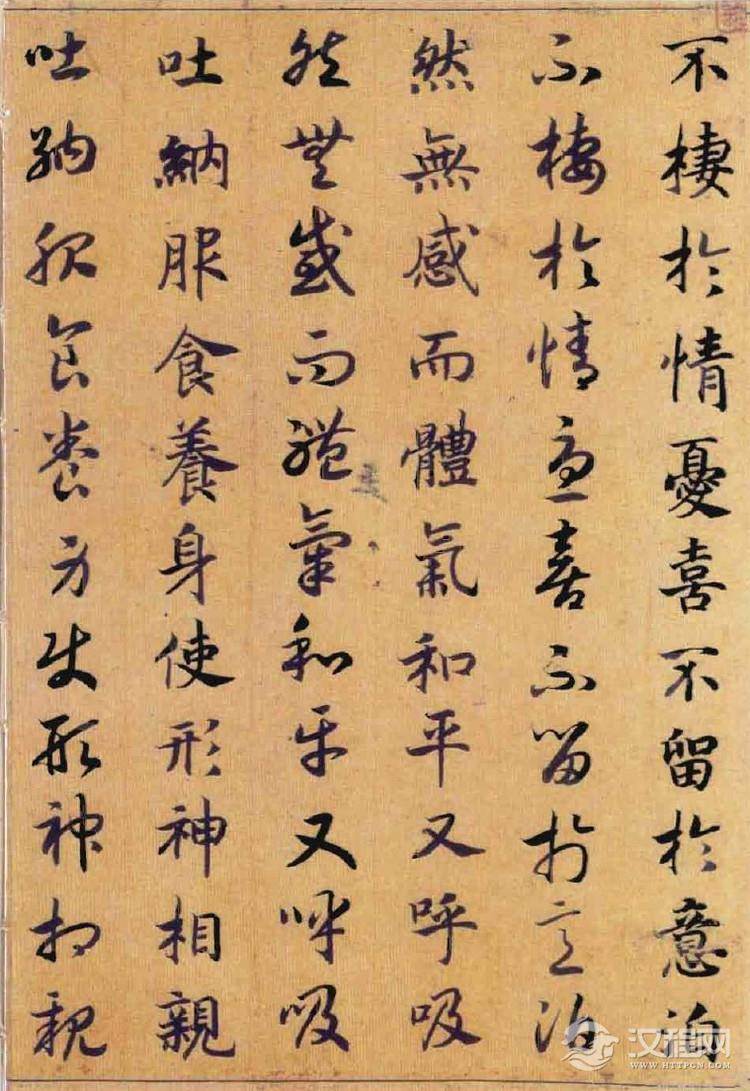 不棲於情憂喜不留於意泊
不棲於情憂喜不留於意泊
然無感而體氣和平又呼吸
然無感而體氣和平又呼吸
吐納服食養身使形神相親
吐納服食養身使形神相親
汉程网
WWW.HTTPCN.COM